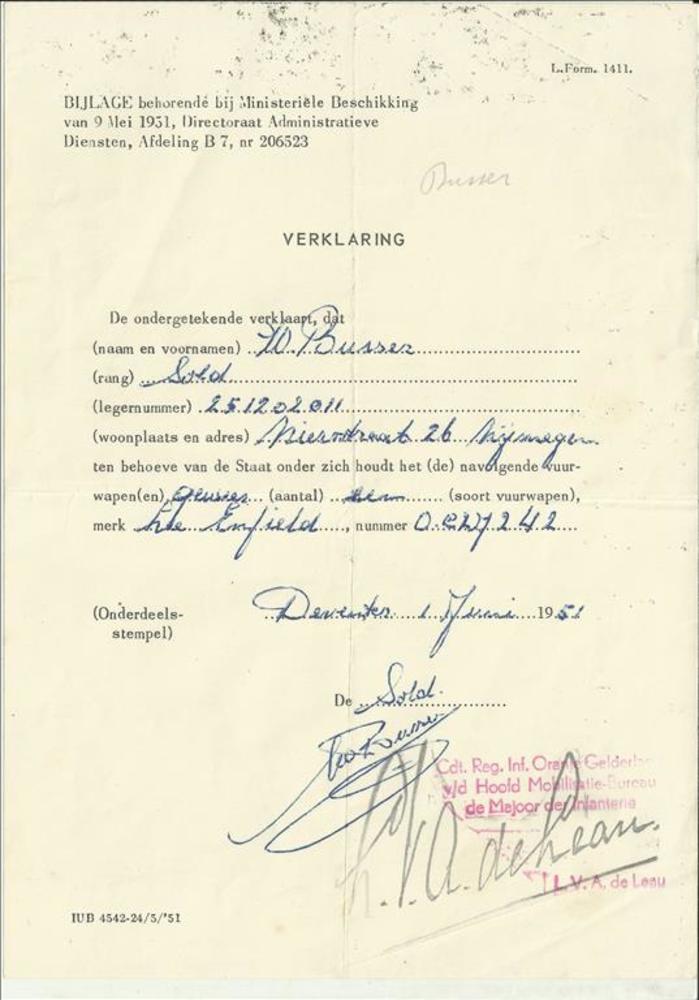 L.Form. 1411.
BIJLAGE behorende bij Ministeriële Beschikking
van 9 Mei 1951, Directoraat Administratieve
Diensten, Afdeling B 7, nr 206523
Busser
VERKLARING
De ondergetekende verklaart, dat
(naam en voornamen) W. Busser
(rang) Sold
(legernummer) 251202011
(woonplaats en adres) Nierstraat 26 Nijmegen
ten behoeve van de Staat onder zich houdt het (de) navolgende vuur-
wapen(en), geweer (aantal) een (soort vuurwapen),
merk Lee Enfield, nummer
Deventer 1 Juni 1951
(Onderdeels-
stempel)
De Sold.
Busser
Cdt. Reg. Inf. Oranje Gelderland
v/d Hoofd Mobilisatie-Bureau
de Majoor der Infanterie
L.V.A. de Leau.
L.V.A. de Leau
IUB 4542-24/5/'51